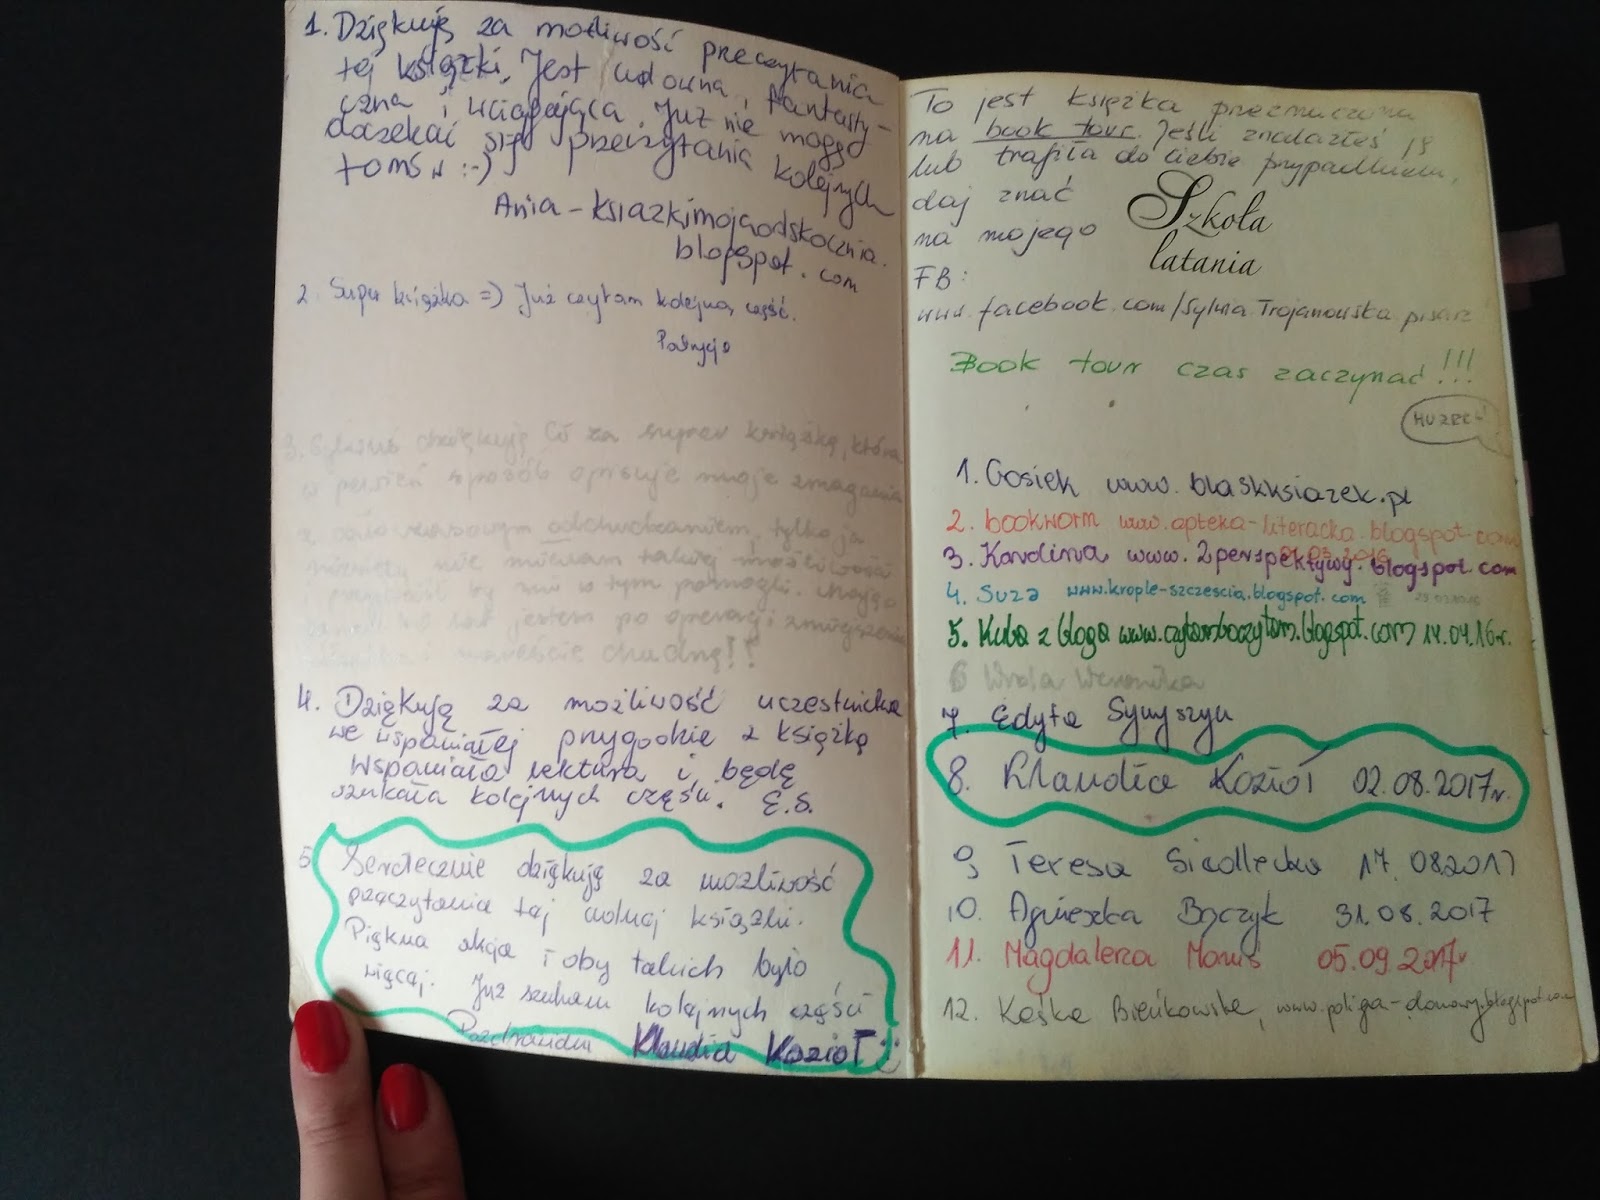 1. Dziękuję za możliwość preczytania
tej książki. Jest cudowna, fantasty-
czna i wciągająca. Już nie mogę
doczekać się przeczytania kolejnych
tomów :-)
Ania - ksiazkimojaodskocznia.
blogspot.com
2. Super książka =) Już czytam kolejną część.
Patrycja
3. dziękuję Ci za super książkę, która
w pewien sposób opisuje moje zmagania
z odchudzaniem, tylko ja
niestety nie miałam takiej możliwości
by mi w tym pomogli.
lat jestem po operacji zmniejszenia
i chudnę!!
4. Dziękuję za możliwość uczestnictwa
we wspaniałej przygodzie z książką
Wspaniała lektura i będę
szukała kolejnych części. E.S.
5 Serdecznie dziękuję za możliwość
przeczytania tej cudnej książki.
Piękna akcja i oby takich było
więcej. Już szukam kolejnych części
Pozdrawiam Klaudia Kozioł :)
To jest książka przeznaczona
na book tour. Jeśli znalazłeś ją
lub trafiła do ciebie przypadkiem,
daj znać
na mojego
FB:
www.facebook.com/Sylwia.Trojanowska.pisarz
Szkoła
latania
Book tour czas zaczynać!!!
1. Gosiek www.blaskksiazek.pl
2. bookworm www.apteka-literacka.blogspot.com
3. Karolina www.2perspektywy.blogspot.com
4. Suza www.krople-szczescia.blogspot.com
5. Kuba z bloga www.czytamboczytam.blogspot.com 14.04.16r.
6 Weronika
7. Edyta
8. Klaudia Kozioł 02.08.2017r.
9 Teresa Siedlecka 17.082017
10. Agnieszka Bączyk 31.08.2017
11. Magdalena 05.09.2017r
12. Kaśka Bieńkowska,